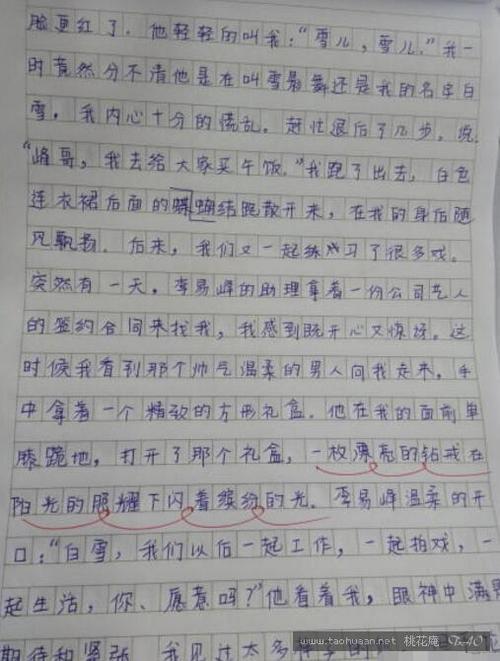 脸更红了。他轻轻的叫我:“雪儿,雪儿。”我一
时竟然分不清他是在叫雪景舞还是我的名字白
雪。我内心十分的慌乱。赶忙退后了几步。说
“峰哥,我去给大家买午饭。”我跑了出去,白色
连衣裙后面的蝴蝶结跑散开来,在我的身后随
风飘扬。后来,我们又一起练习了很多戏。
突然有一天,李易峰的助理拿着一份公司艺人
的签约合同来找我,我感到既开心又惊讶。这
时候我看到那个帅气温柔的男人向我走来,手
中拿着一个精致的方形礼盒。他在我的面前单
膝跪地,打开了那个礼盒,一枚漂亮的钻戒在
阳光的照耀下闪着缤纷的光。李易峰温柔的开
口:“白雪,我们以后一起工作,一起拍戏,一
起生活,你、愿意吗?”他看着我,眼神中满是
期待和紧张。我见过太多
www.taohuaan.net 桃花庵